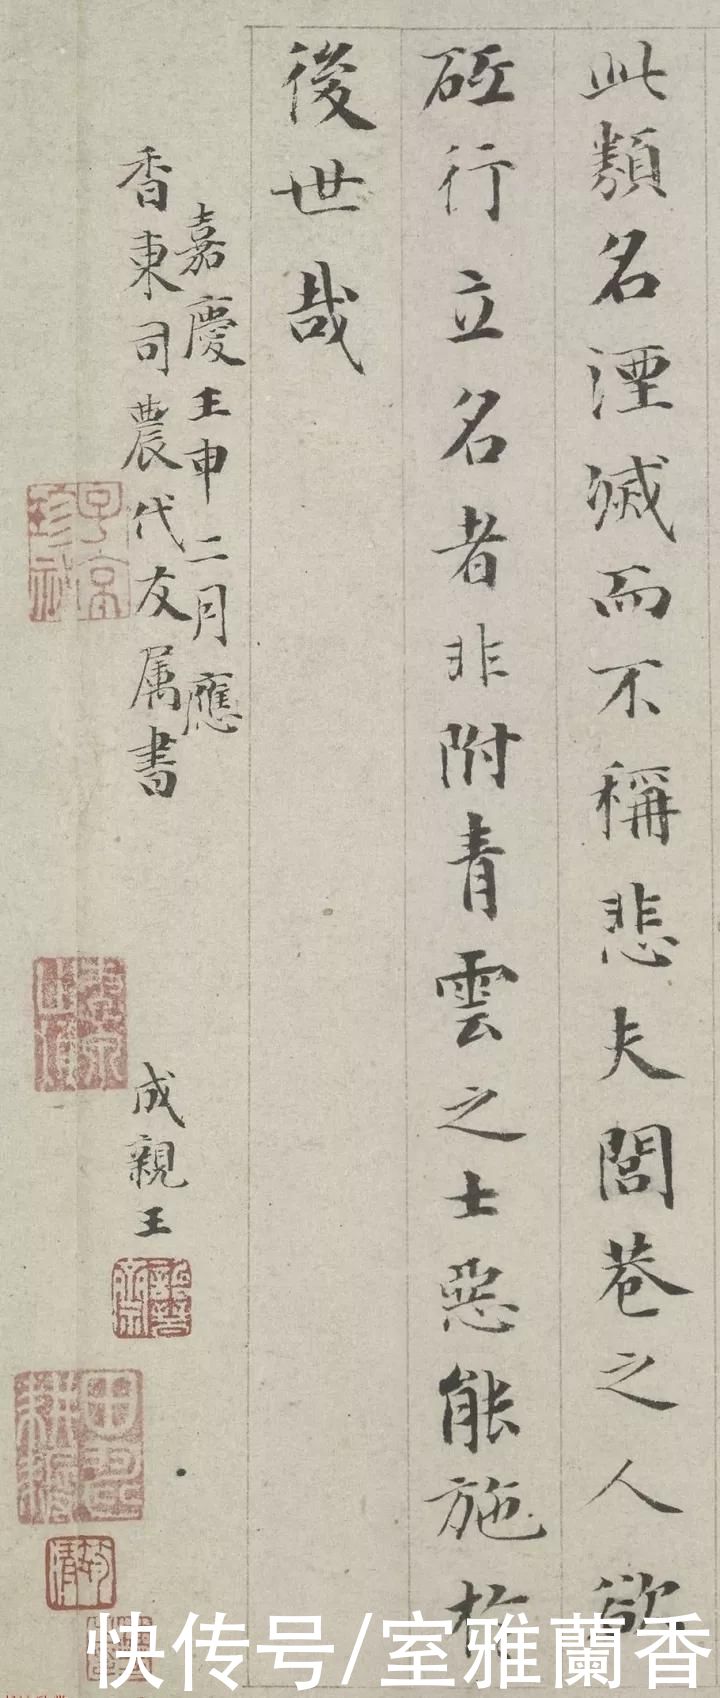 此類名湮滅而不稱悲夫閭巷之人欲
砥行立名者非附青雲之士惡能施於
後世哉
嘉慶壬申二月應
香東司農代友属書
成親王
快传号/室雅蘭香